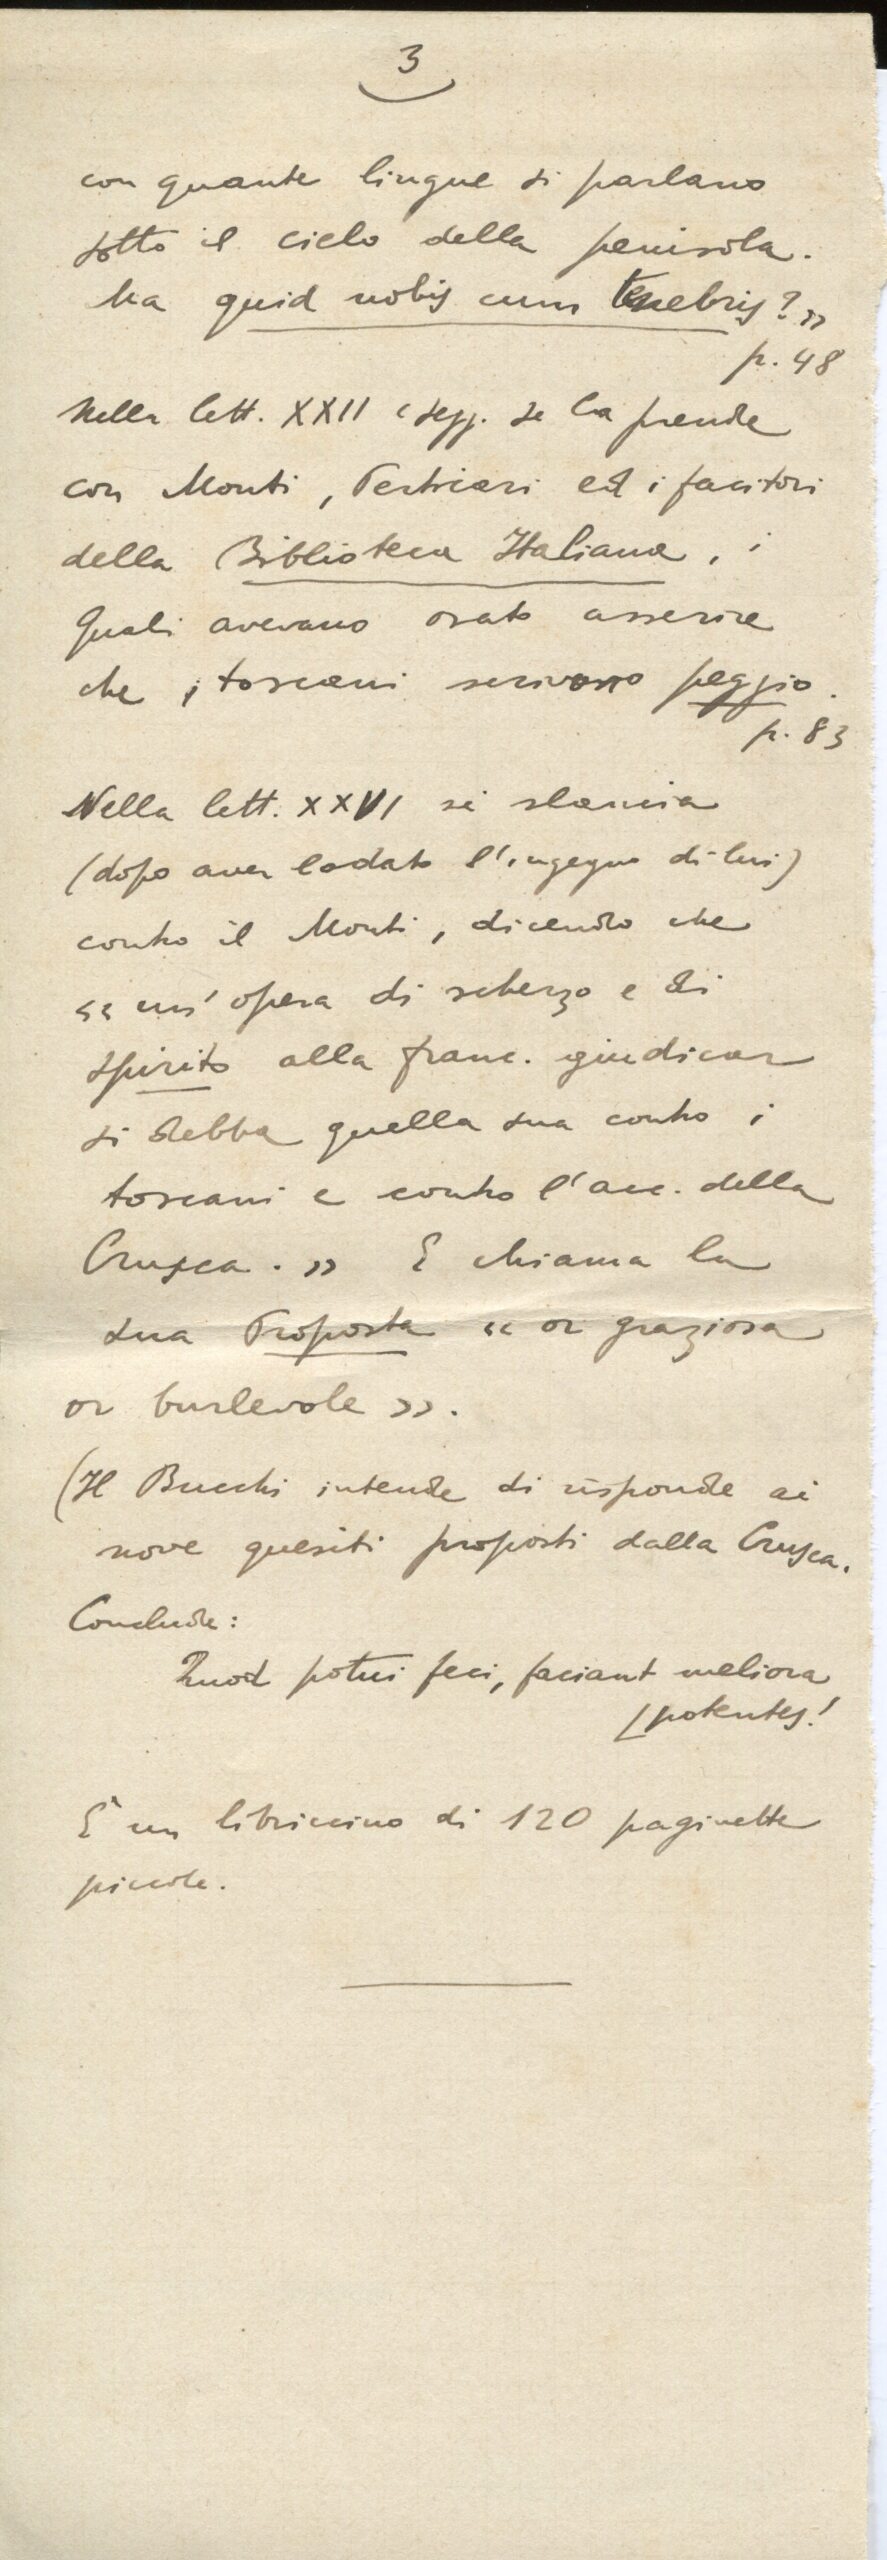 3
con quante lingue si parlano
sotto il cielo della penisola.
Ma quid nobis cum tenebris? »
p. 48
Nella lett. XXII e segg. se la prende
con Monti, Perticari ed i facitori
della Biblioteca Italiana, i
quali avevano osato asserire
che i toscani scrivono peggio.
p. 83
Nella lett. XXVI si slancia
(dopo aver lodato l'ingegno di lui)
contro il Monti, dicendo che
« un'opera di scherzo e di
spirito alla franc. giudicar
si debba quella sua contro i
toscani e contro l'acc. della
Crusca. » E chiama la
sua Proposta « or graziosa
or burlevole ».
(Il Bucchi intende di risponde ai
nove quesiti proposti dalla Crusca.
Conclude:
Quod potui feci, faciant meliora
[potentes!
È un libriccino di 120 paginette
piccole.